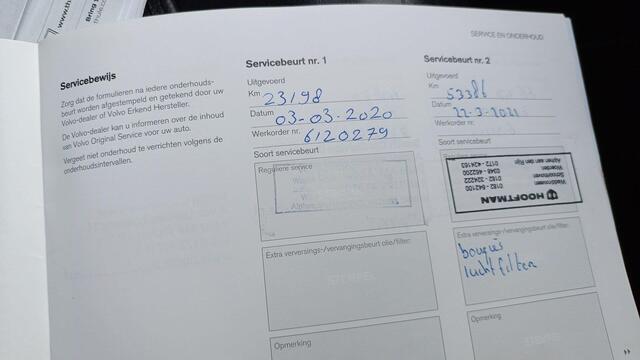 www.th
Bring
thule.com
SERVICE EN ONDERHOUD
Servicebewijs
Zorg dat de formulieren na iedere onderhouds-
beurt worden afgestempeld en getekend door uw
Volvo-dealer of Volvo Erkend Hersteller.
De Volvo-dealer kan u informeren over de inhoud
van Volvo Original Service voor uw auto.
Vergeet niet onderhoud te verrichten volgens de
onderhoudsintervallen.
Servicebeurt nr. 1
Uitgevoerd
Km 23198
Datum 03-03-2020
Werkorder nr. 6120279
Soort servicebeurt
Reguliere service
Extra verversings-/vervangingsbeurt olie/filter:
STEMPEL
Opmerking
Servicebeurt nr. 2
Uitgevoerd
Km 53386
Datum 22-3-2021
Werkorder nr.
Soort servicebeurt
HOOFTMAN
Waddinxveen 0182 - 643100
Schoonhoven 0182 - 324222
Woerden 0348 - 462200
Alphen aan den Rijn 0172 - 424161
Extra verversings-/vervangingsbeurt olie/filter:
bougies
luchtfilter
Opmerking